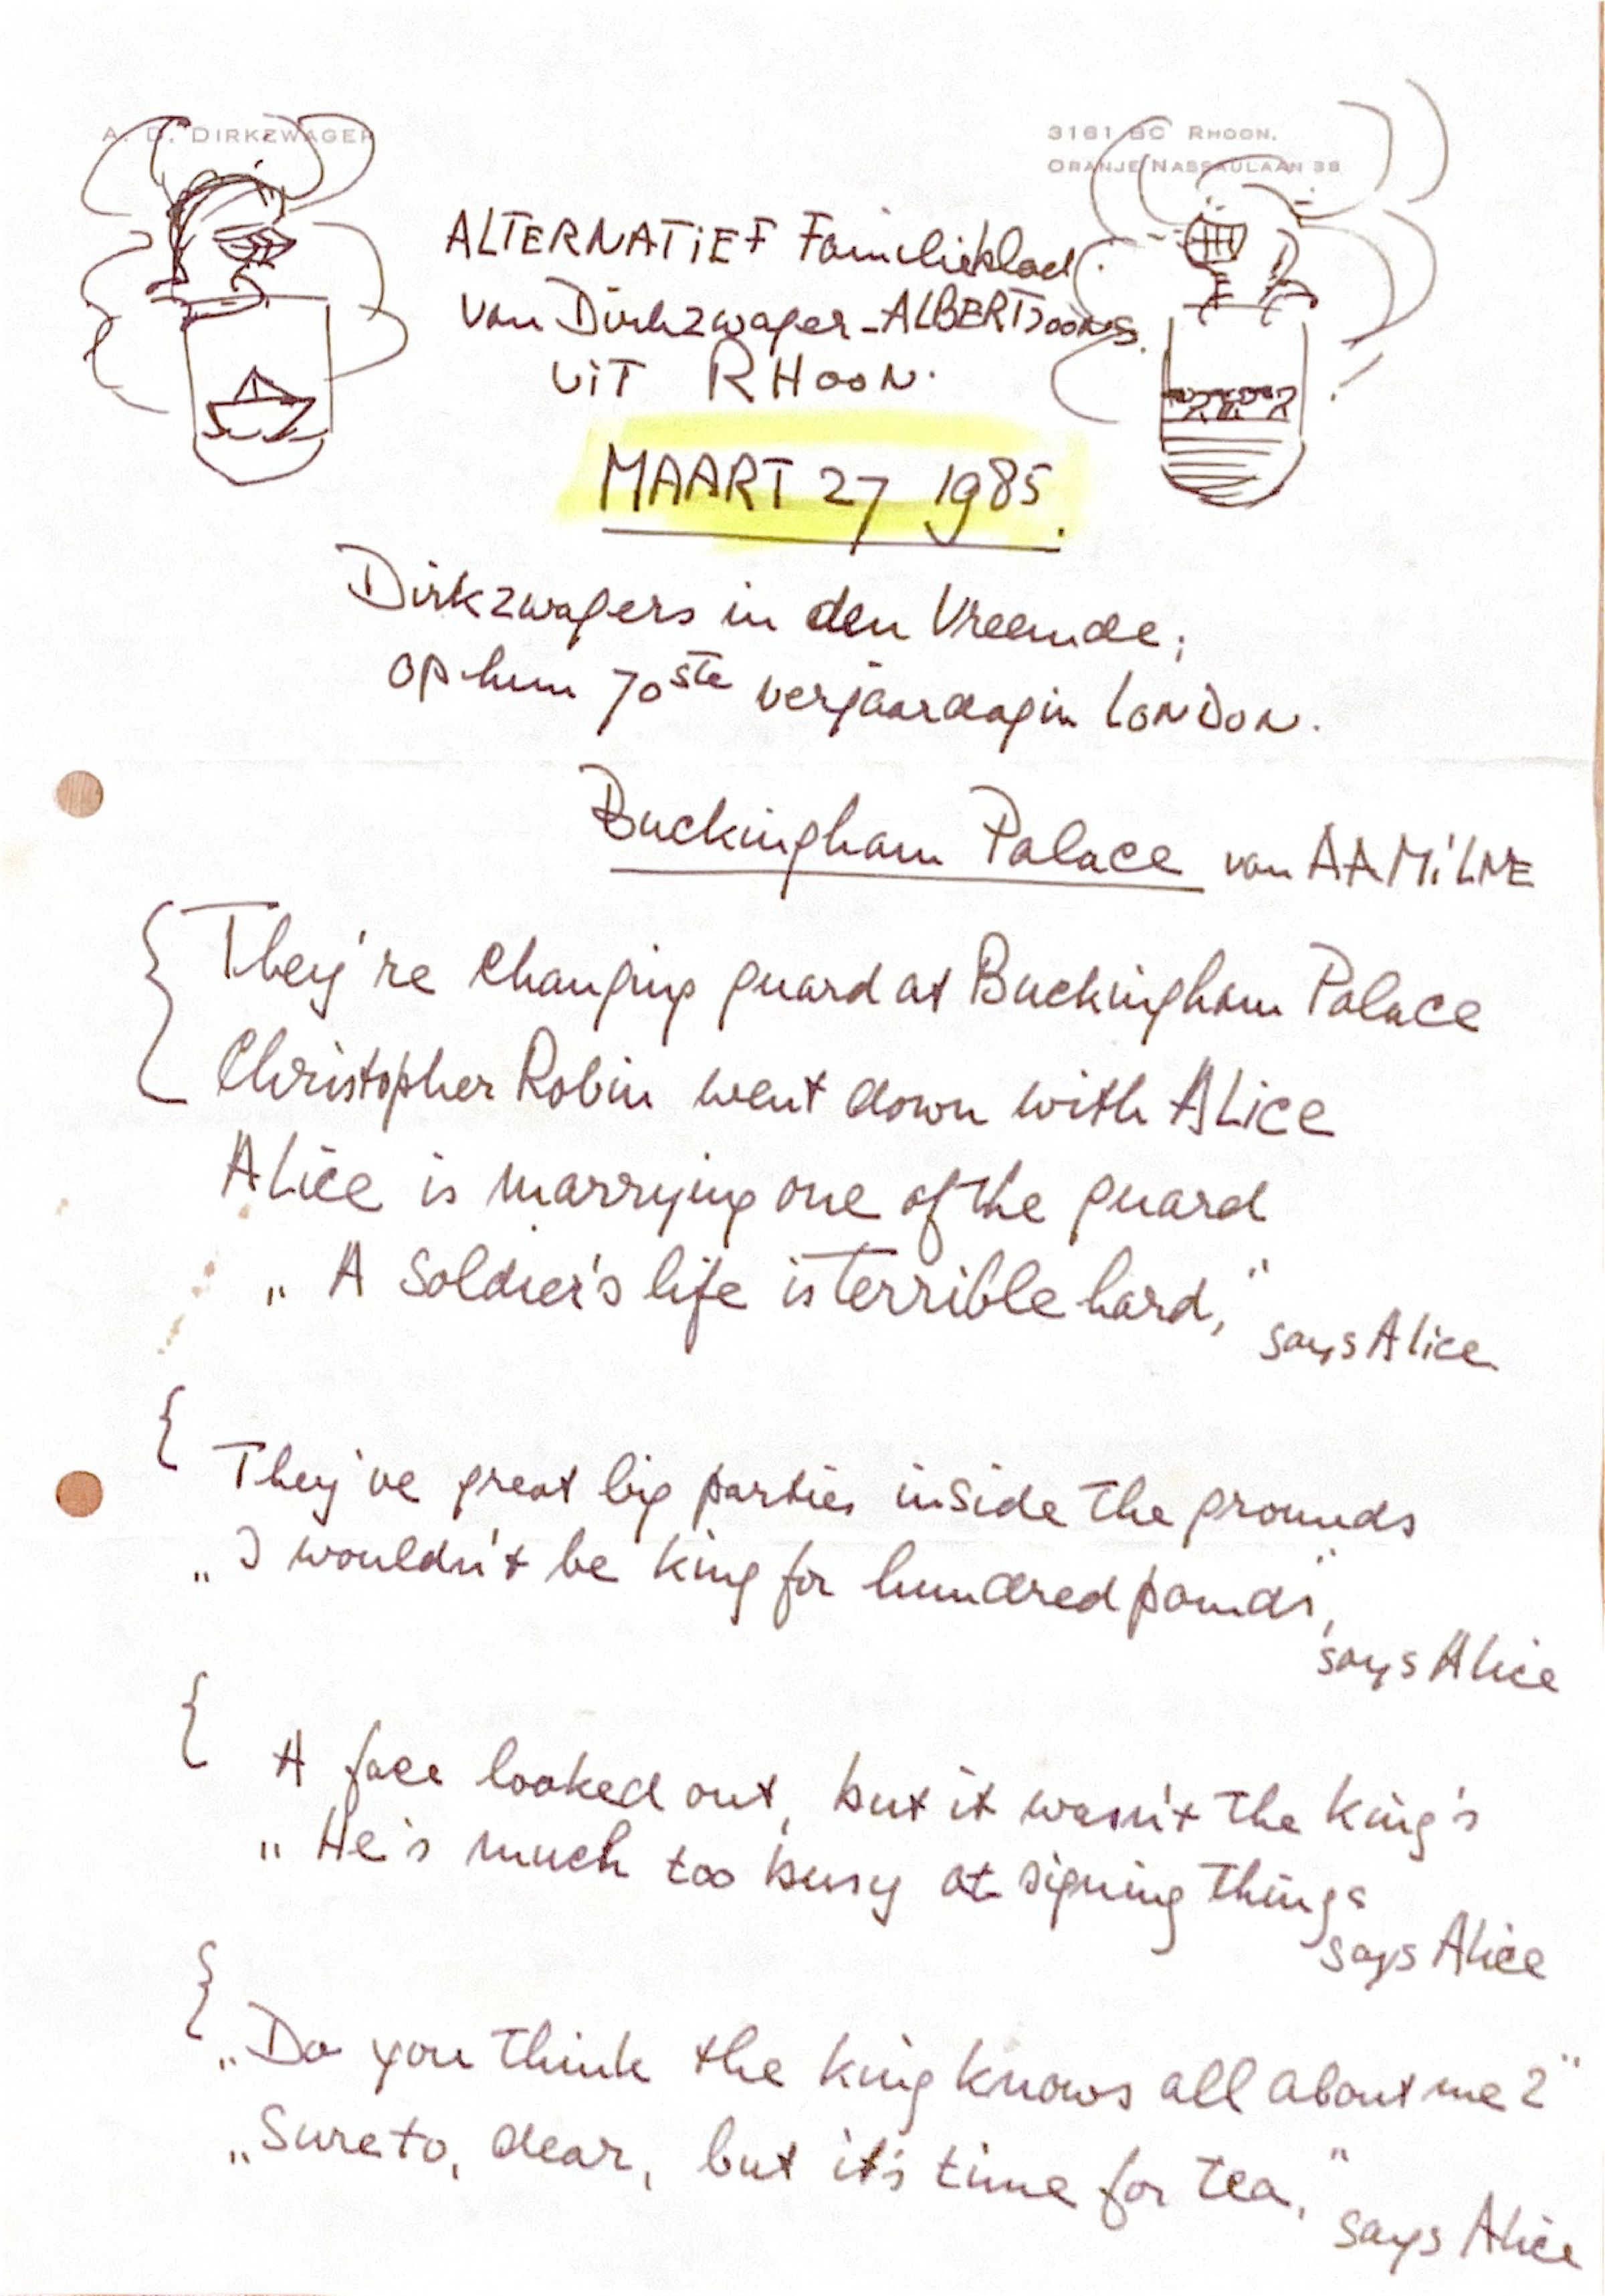 A. D. DIRKZWAGER
3161 BC RHOON.
ORANJE NASSAULAAN 38
ALTERNATIEF Familieblad
van Dirkzwager-ALBERTSOONS.
UIT RHOON.
MAART 27 1985.
Dirkzwagers in den Vreemde;
op hun 70ste verjaardag in LONDON.
Buckingham Palace van A A MILNE
They're changing guard at Buckingham Palace
Christopher Robin went down with ALICE
ALice is marrying one of the guard
„ A Soldier's life is terrible hard," says Alice
They've great big parties inside the grounds
„ I wouldn't be king for hundred pounds",
says Alice
A face looked out, but it wasn't the king's
„ He's much too busy at signing things
says Alice
„ Do you think the king knows all about me?"
„ Sure to, dear, but it's time for tea," says Alice